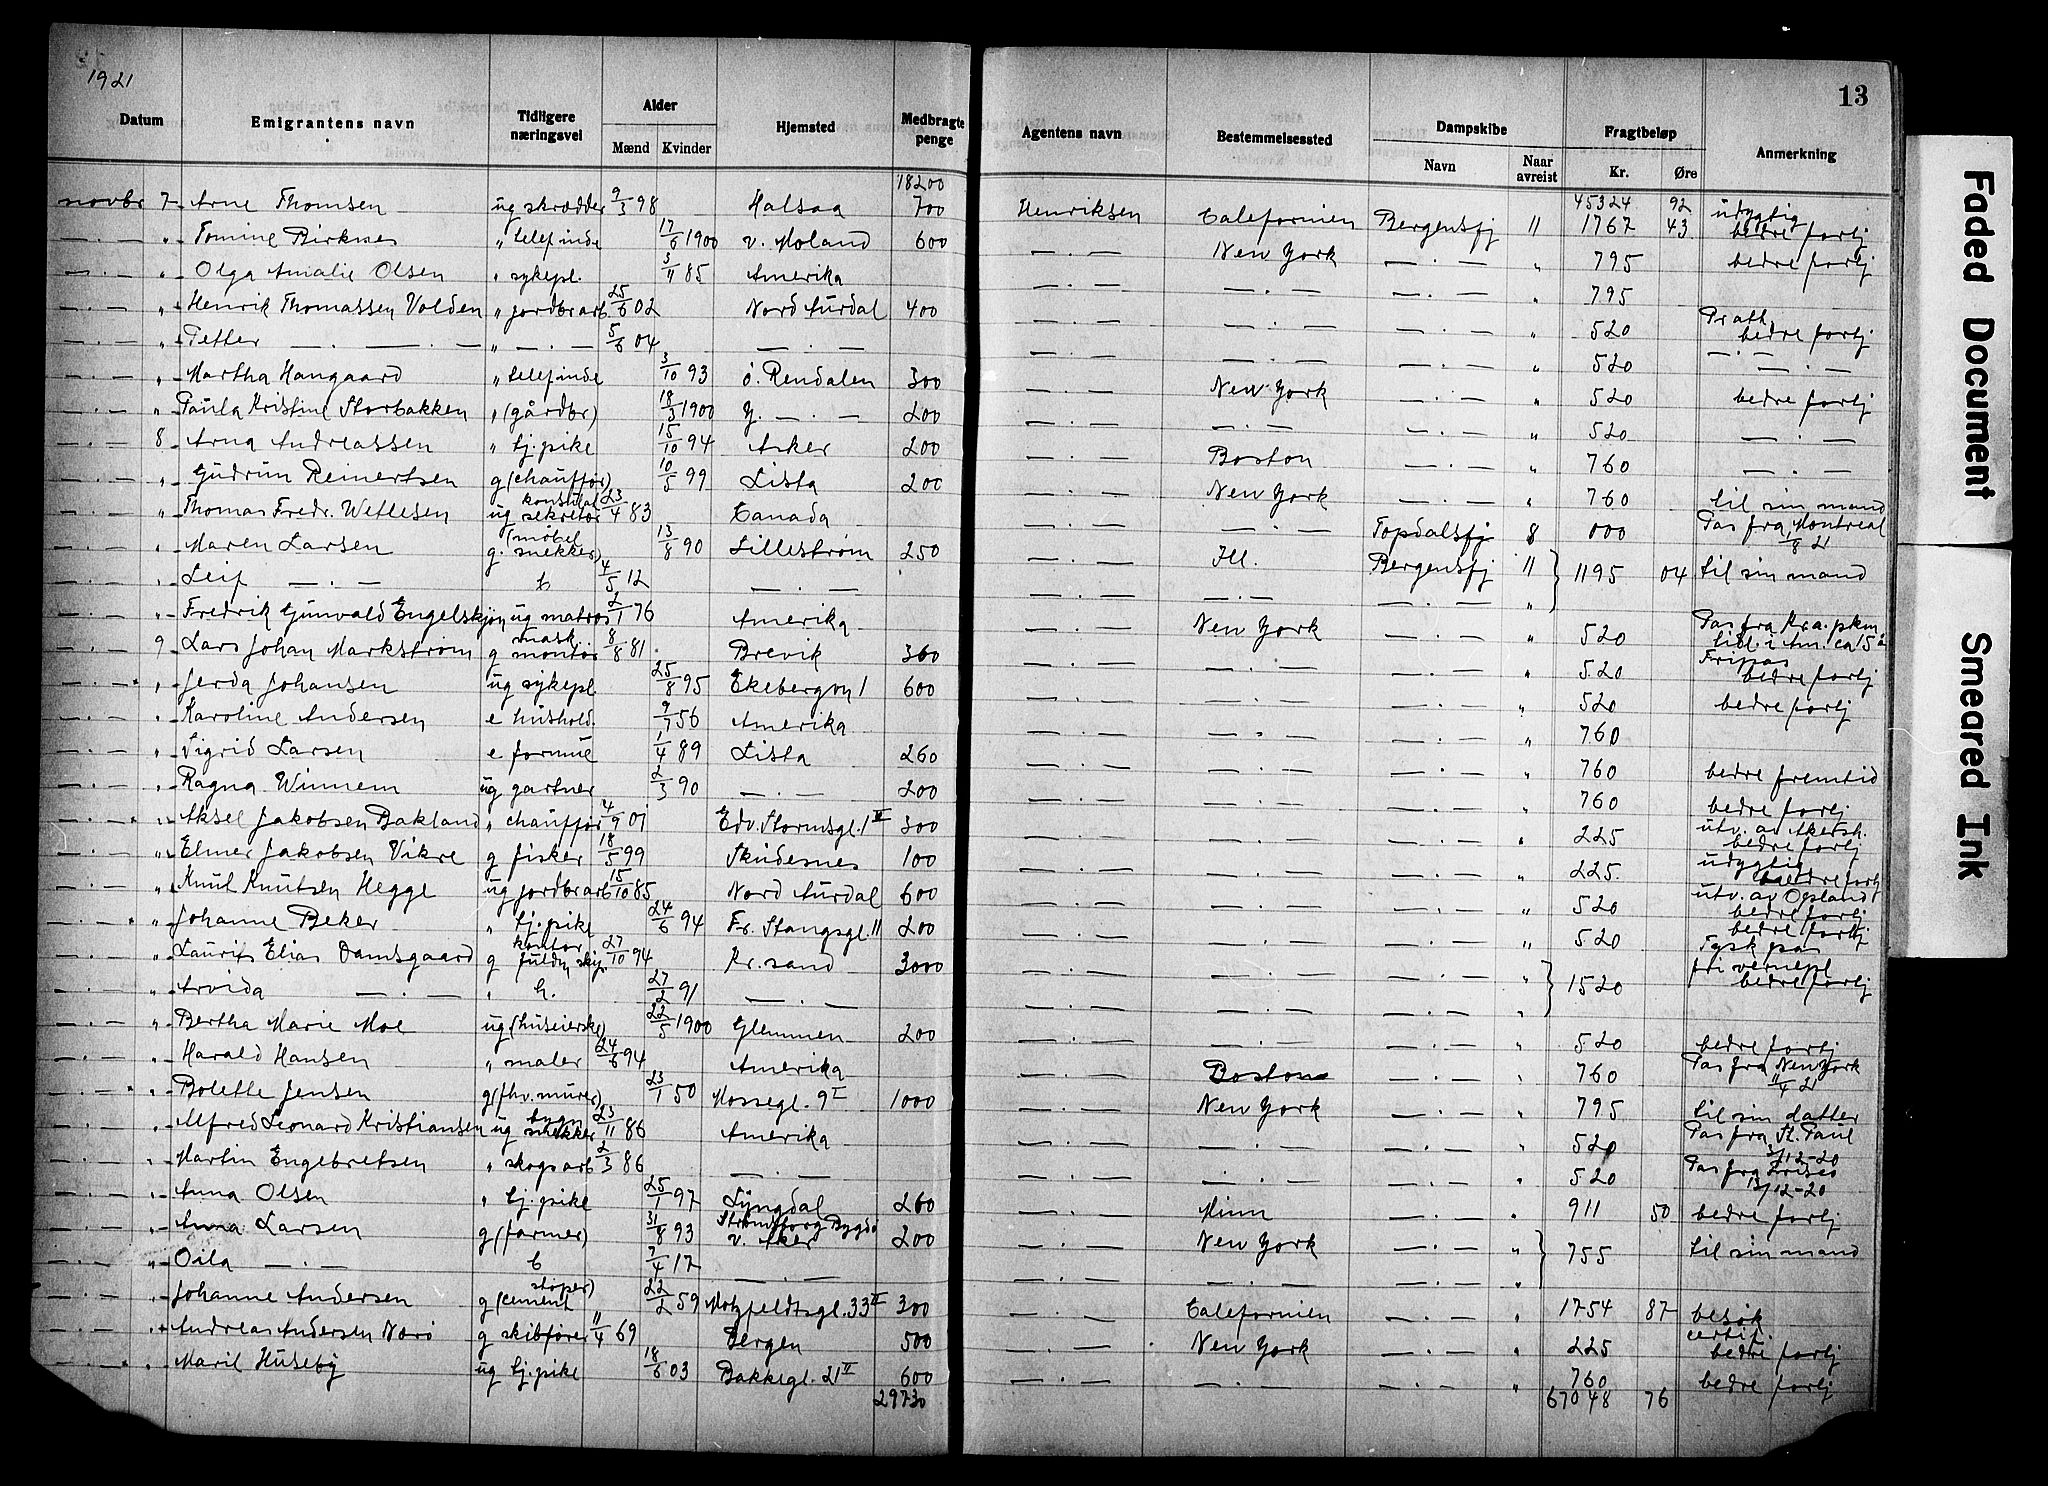 1921
13
Datum Emigrantens navn Tidligere næringsvei Alder Mænd Kvinder Hjemsted Medbragte penge Agentens navn Bestemmelsessted Dampskibe Navn Naar avreist Fragtbeløp Kr. Øre Anmerkning
18200 45324 92
novbr 7 Arne Thomsen ug skrædder 9/3 98 Halsaa 700 Henriksen Caleformien Bergensfj 11 1767 43 udygtig bedre forlj
— . — " Tomine Birknes " telefinde 17/6 1900 v. Moland 600 — . — New York — . — " 795 bedre forlj
— . — " Olga Amalie Olsen " sykepl. 3/11 85 Amerika — . — — . — — . — " 795
— . — " Henrik Thomassen Volden " jordbrarb 25/6 02 Nord Aurdal 400 — . — — . — — . — " 520 bedre forlj
— . — " Petter — . — . — " — . — 5/6 04 — . — — . — — . — — . — " 520 — . —
— . — " Martha Haugaard " telefinde 3/10 93 ø. Rendalen 300 — . — New York — . — " 520 bedre forlj
— . — " Paula Kristine Storbakken " (gårdbr) 18/3 1900 Y. — . — 200 — . — — . — — . — " 520 — . —
— . — 8 Arna Andreassen " tj.pike 15/10 94 Asker 200 — . — Boston — . — " 760 — . —
— . — " Gudrun Reinertsen g (chauffør) 10/5 99 Lista 200 — . — New York — . — " 760 til sin mand
— . — " Thomas Fredr. Wetlesen ug sekretær 23/4 83 Canada — . — — . — Topdalsfj 8 000 Pas fra Montreal 1/8 21
— . — " Maren Larsen g. (møbel snekker) 13/8 90 Lillestrøm 250 — . — Ill. Bergensfj 11 1195 04 til sin mand
— . — " Leif — . — b 4/5 12 — . — — . — — . — — . — "
— . — " Fredrik Gunvald Engelskjøn ug matros 2/1 76 Amerika — . — New York — . — " 520 Pas fra Kra. pkm tidl. i Am. ca 15 å
— . — 9 Lars Johan Markstrøm g mask. montør 8/8 81 Brevik 360 — . — — . — — . — " 520 Fripas bedre forlj
— . — " Jerda Johansen ug sykepl 25/8 95 Ekebergvn 1 600 — . — — . — — . — " 520 bedre forlj
— . — " Karoline Andersen e hushold. 9/7 56 Amerika — . — — . — — . — " 760
— . — " Sigrid Larsen e formue 1/4 89 Lista 260 — . — — . — — . — " 760 bedre fremtid
— . — " Ragna Winnem ug gartner 2/3 90 — . — 200 — . — — . — — . — " 760 bedre forlj
— . — " Aksel Jakobsen Bakland " chauffør 4/9 01 Edv. Stormsgt. 1 300 — . — — . — — . — " 225 utv. av Akersh. bedre forlj
— . — " Elmer Jakobsen Vikre g fisker 18/5 99 Skudesnes 100 — . — — . — — . — " 225 udygtig bedre forlj
— . — " Knut Knutsen Hegge ug jordbrarb 15/10 85 Nord Aurdal 600 — . — — . — — . — " 520 utv. av Opland bedre forlj
— . — " Johanne Beker " tj.pike 24/6 94 Fr. Stangsgt. 11 200 — . — — . — — . — " 520 bedre forlj Tysk pas
— . — " Laurits Elias Damsgaard g kontor fuldm skip. 27/10 94 Kr. sand 3000 — . — — . — — . — " 1520 fri vernepl bedre forlj
— . — " Arvida — . — " h. 27/2 91 — . — — . — — . — — . — "
— . — " Bertha Marie Moe ug (huseierske) 22/5 1900 Glemmen 200 — . — — . — — . — " 520 bedre forlj
— . — " Harald Hansen " maler 24/6 94 Amerika — . — Boston — . — " 760 Pas fra New York 11/4 21
— . — " Bolette Jensen g (fhv. murer) 23/1 50 Mossegt. 9 I 1000 — . — New York — . — " 795 til sin datter
— . — " Alfred Leonard Kristiansen ug bygn snekker 23/11 86 Amerika — . — — . — — . — " 520 Pas fra St. Paul 3/12-20
— . — " Martin Engebretsen " skogsarb 2/3 86 — . — — . — — . — — . — " 520 Pas fra Frisco 13/12-20
— . — " Anna Olsen " tj.pike 25/1 97 Lyngdal 260 — . — Minn — . — " 911 50 bedre forlj
— . — " Anna Larsen g (farmer) 31/8 93 Strømsborg Bygdø v. Aker 200 — . — New York — . — " 755 til sin mand
— . — " Oila — . — b 7/4 17 — . — — . — — . — — . — "
— . — " Johanne Andersen g (cement støper) 22/2 59 Motzfeldtsgt. 33 II 300 — . — Caleformien — . — " 1754 87 besøk
— . — " Andreas Andersen Norø g skibfører 11/4 69 Bergen 500 — . — New York — . — " 225 certif. bedre forlj
— . — " Marit Huseby ug tj.pike 18/6 03 Bakkegt. 21 II 600 — . — — . — — . — " 760 bedre forlj
29730 67048 76
Faded Document
Smeared Ink